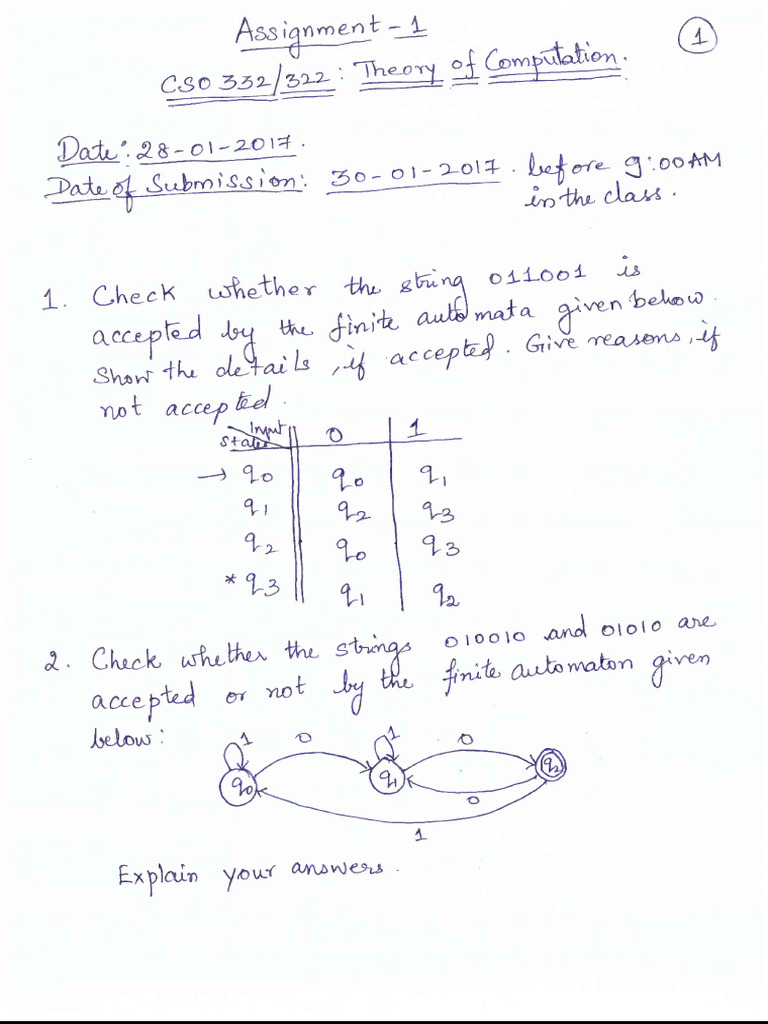 Assignment-1
1
CSO 332/322: Theory of Computation.
Date: 28-01-2017.
Date of Submission: 30-01-2017. before 9:00AM
in the class.
1. Check whether the string 011001 is
accepted by the finite automata given below.
Show the details, if accepted. Give reasons, if
not accepted.
Input
States 0 1
→ q0 q0 q1
q1 q2 q3
q2 q0 q3
* q3 q1 q2
2. Check whether the strings 010010 and 01010 are
accepted or not by the finite automaton given
below:
1 0 1 0
q0 q1 q2
0
1
Explain your answers.